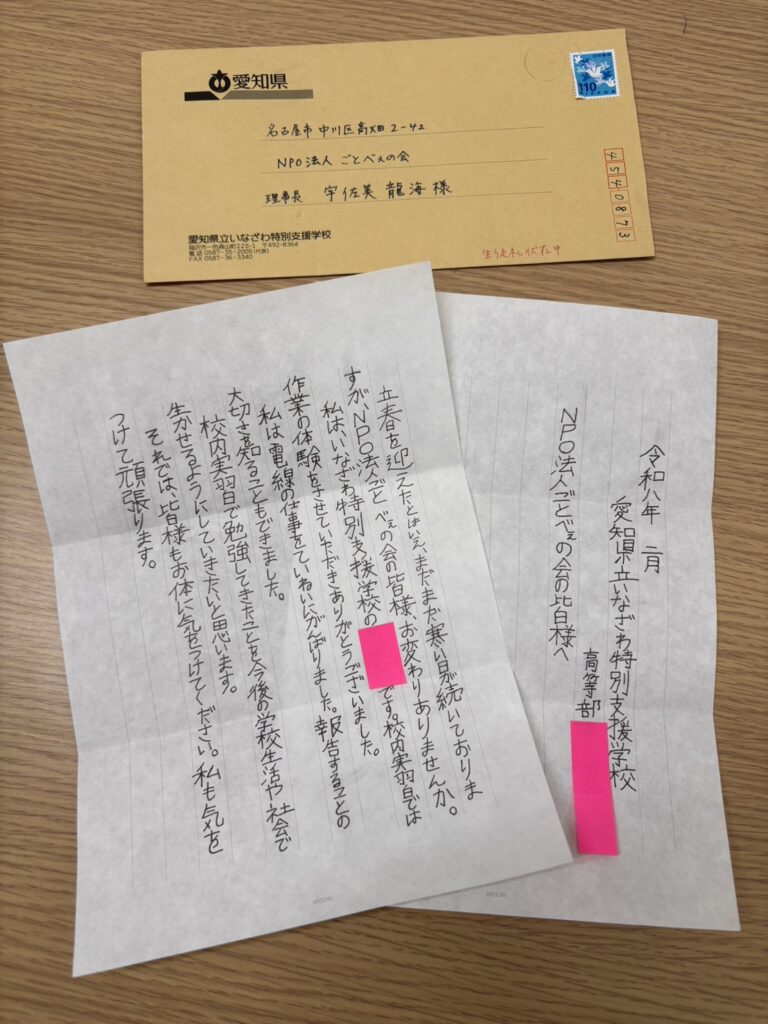 愛知県
110
名古屋市中川区高畑2-42
NPO法人 ごとべぇの会
理事長 宇佐美 龍海 様
4540873
愛知県立いなざわ特別支援学校
稲沢市一色森山町225-1 〒492-8364
電話 0587-35-2005(代表)
FAX 0587-36-3340
生徒礼状在中
立春を迎えたとはいえ、まだまだ寒い日が続いておりま
すが、NPO法人ごとべぇの会の皆様、お変わりありませんか。
私は、いなざわ特別支援学校の
です。校内実習では
作業の体験をさせていただきありがとうございました。
私は電線の仕事をていねいにがんばりました。報告することの
大切さを知ることもできました。
校内実習で勉強してきたことを今後の学校生活や社会で
生かせるようにしていきたいと思います。
それでは、皆様もお体に気をつけてください。私も気を
つけて頑張ります。
MIDORI
令和八年 二月
愛知県立いなざわ特別支援学校
高等部
NPO法人ごとべぇの会の皆様へ
MIDORI